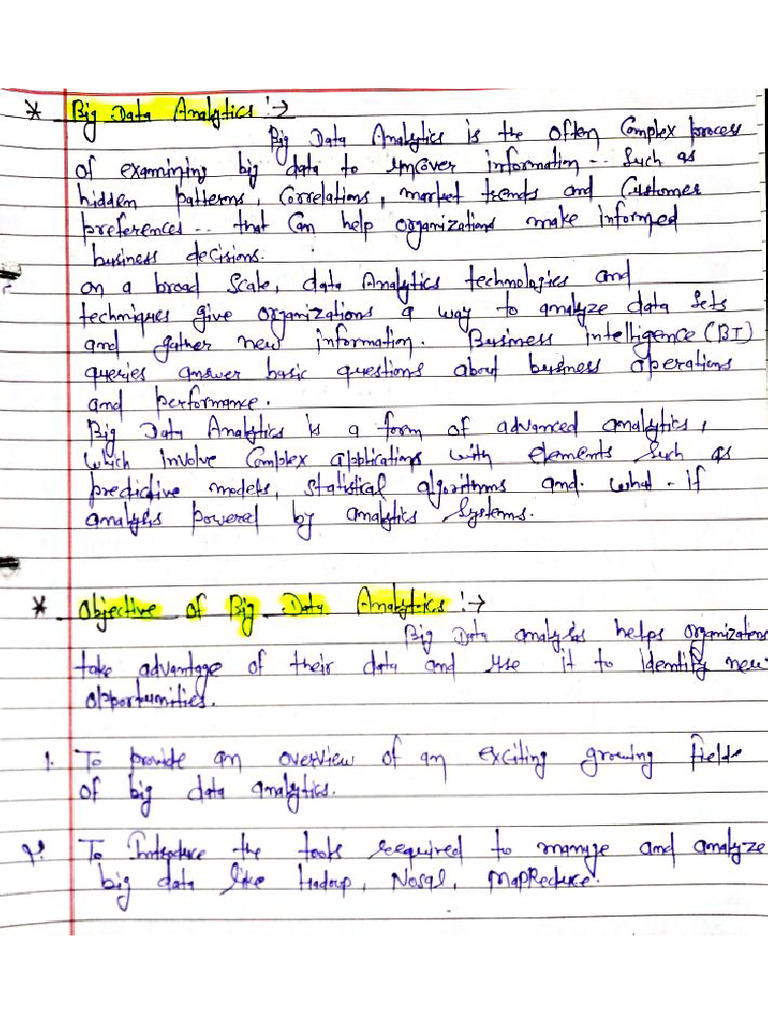 * Big Data Analytics :->
Big Data Analytics is the often Complex process
of examining big data to uncover information -- Such as
hidden patterns, Correlations, market trends and Customer
preferences -- that Can help organizations make informed
business decisions.
on a broad Scale, data Analytics technologies and
techniques give organizations a way to analyze data sets
and gather new information. Business intelligence (BI)
queries answer basic questions about business operations
and performance.
Big Data Analytics is a form of advanced analytics,
which involve Complex applications with elements Such as
predictive models, statistical algorithms and what-if
analysis powered by analytics Systems.
* Objective of Big Data Analytics :->
Big Data analysis helps organizations
take advantage of their data and use it to identify new
opportunities.
1. To provide an overview of an exciting growing fields
of big data analytics.
2. To Introduce the tools required to manage and analyze
big data like Hadoop, Nosql, MapReduce.